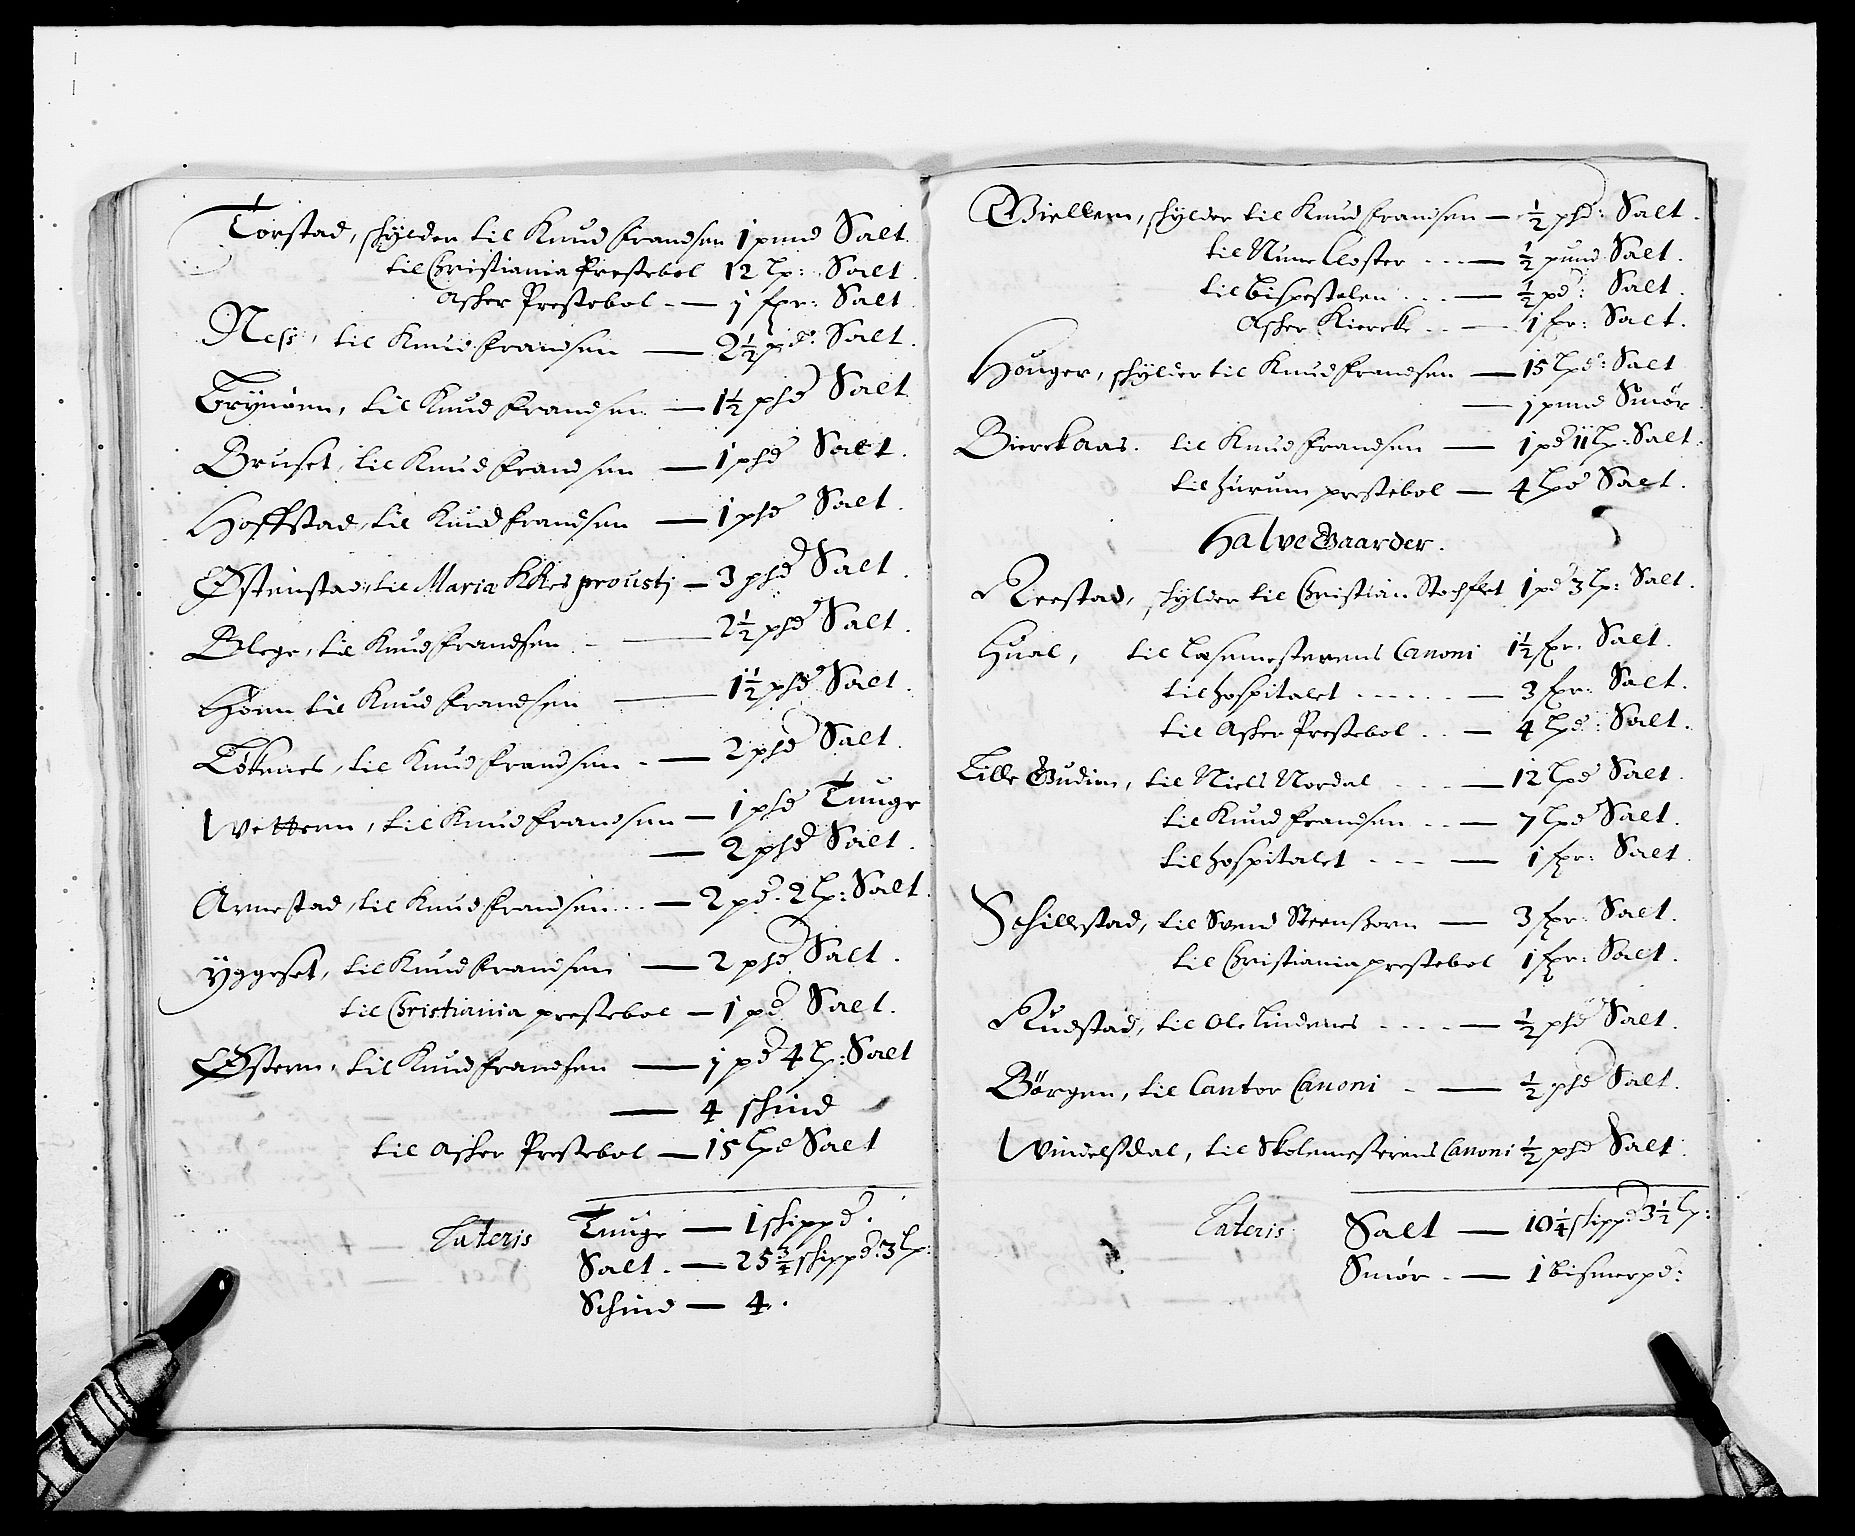 Torstad, skylder til Knud Frandsen 1 pund Salt.
til Christiania Prestebol 12 lp: Salt.
Asker Prestebol - 1 fpr: Salt.
Ness, til Knud Frandsen — 2½ pd: Salt.
til Knud Frandsen — 1½ phd Salt
Bruset, til Knud Frandsen — 1 phd Salt.
Hoffstad, til Knud Frandsen — 1 phd Salt.
Østenstad, til Maria Kkes proustj — 3 phd Salt.
Blege, til Knud Frandsen - — 2½ phd Salt.
Hønn til Knud Frandsen — 1½ phd Salt.
til Knud Frandsen - — 2 phd Salt.
Wettern, til Knud Frandsen — 1 phd Tunge
— 2 phd Salt.
Arnestad, til Knud Frandsen - — 2 pd. 2 lp: Salt.
Yggeset, til Knud Frandsen — 2 phd Salt.
til Christiania prestebol — 1 pd Salt.
Østern, til Knud Frandsen — 1 pd 4 lp: Salt
— 4 skind
til Asker Prestebol — 15 lpd Salt
Lateris Tunge — 1 skippd.
Salt. — 25¾ skippd: 3 lp:
Schind — 4.
Giellem, skylder til Knud Frandsen — ½ phd: Salt.
til Nunne Closter - - - — ½ pund Salt.
til Bispestolen - - — ½ pd: Salt.
Asker Kiercke - - — 1 fpr: Salt.
Houger, skylder til Knud Frandsen — 15 lpd: Salt
— 1 pund Smør.
Bierckaas. til Knud Frandsen — 1 pd 11 lp: Salt.
til Hurum prestebol — 4 lpd Salt.
Halve Gaarder.
Reestad, skylder til Christian Stochflet 1 pd 3 lp: Salt.
Hual, til Læsemesterens Canoni 1½ fpr: Salt.
til Hospitalet - - - - - — 3 fpr: Salt.
til Asker Prestebol - - — 4 lpd: Salt.
Lille Gudim, til Niels Nordal - - - — 12 lpd Salt.
til Knud Frandsen - - — 7 lpd Salt.
til Hospitalet - - - — 1 fpr: Salt.
Schillestad, til Svend — 3 fpr: Salt.
til Christiania prestebol 1 fpr: Salt.
Rudstad, til Ole Lindenes - - - - — ½ phd Salt.
Børgen, til Cantor Canoni - — ½ phd Salt.
Windelsdal, til Skolemesterens Canoni ½ phd Salt.
Lateris Salt — 10¼ skippd 3½ lp:
Smør. — 1 bismerpd: